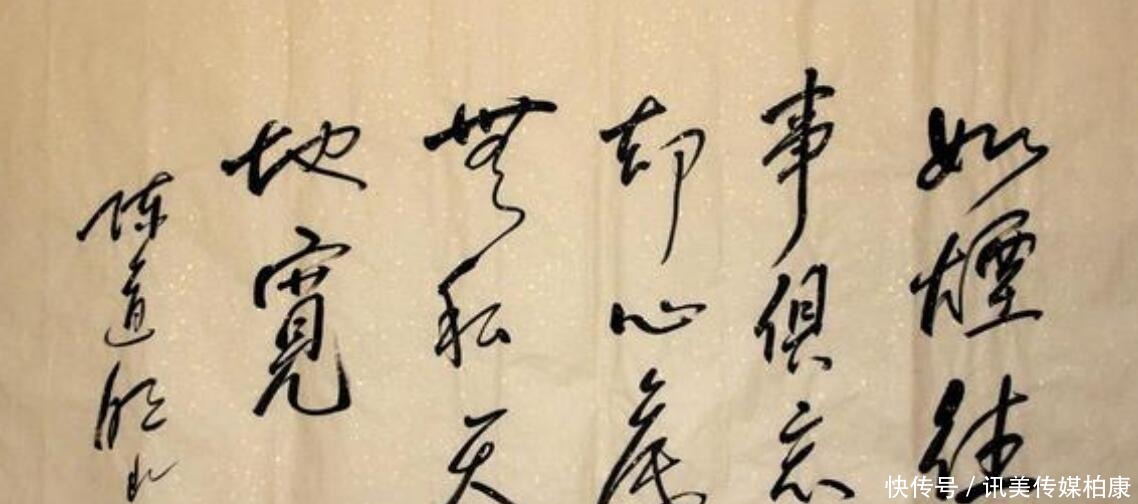 如煙往
事俱忘
却心底
無私天
地寬
陈道明
快传号 / 讯美传媒柏康